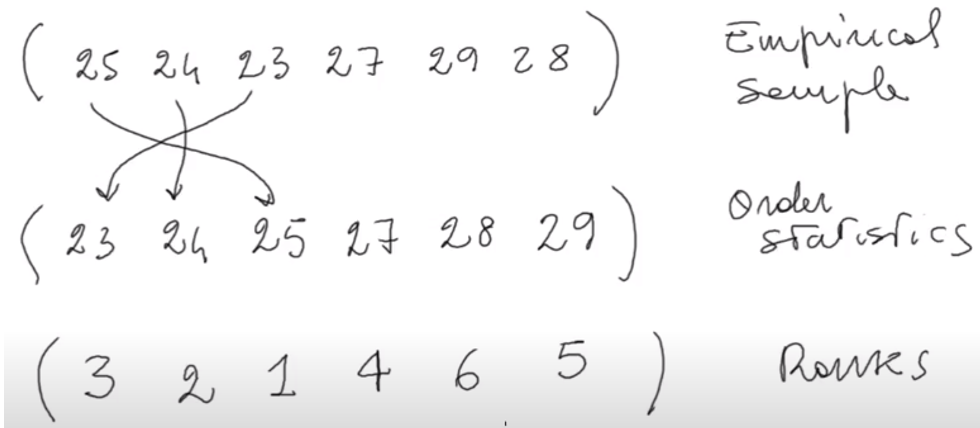 ( 25 24 23 27 29 28 ) Empirical
sample
( 23 24 25 27 28 29 ) Order
statistics
( 3 2 1 4 6 5 ) Ranks